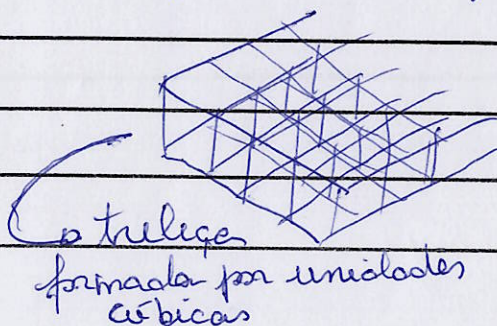 treliça
formada por unidades
cúbicas